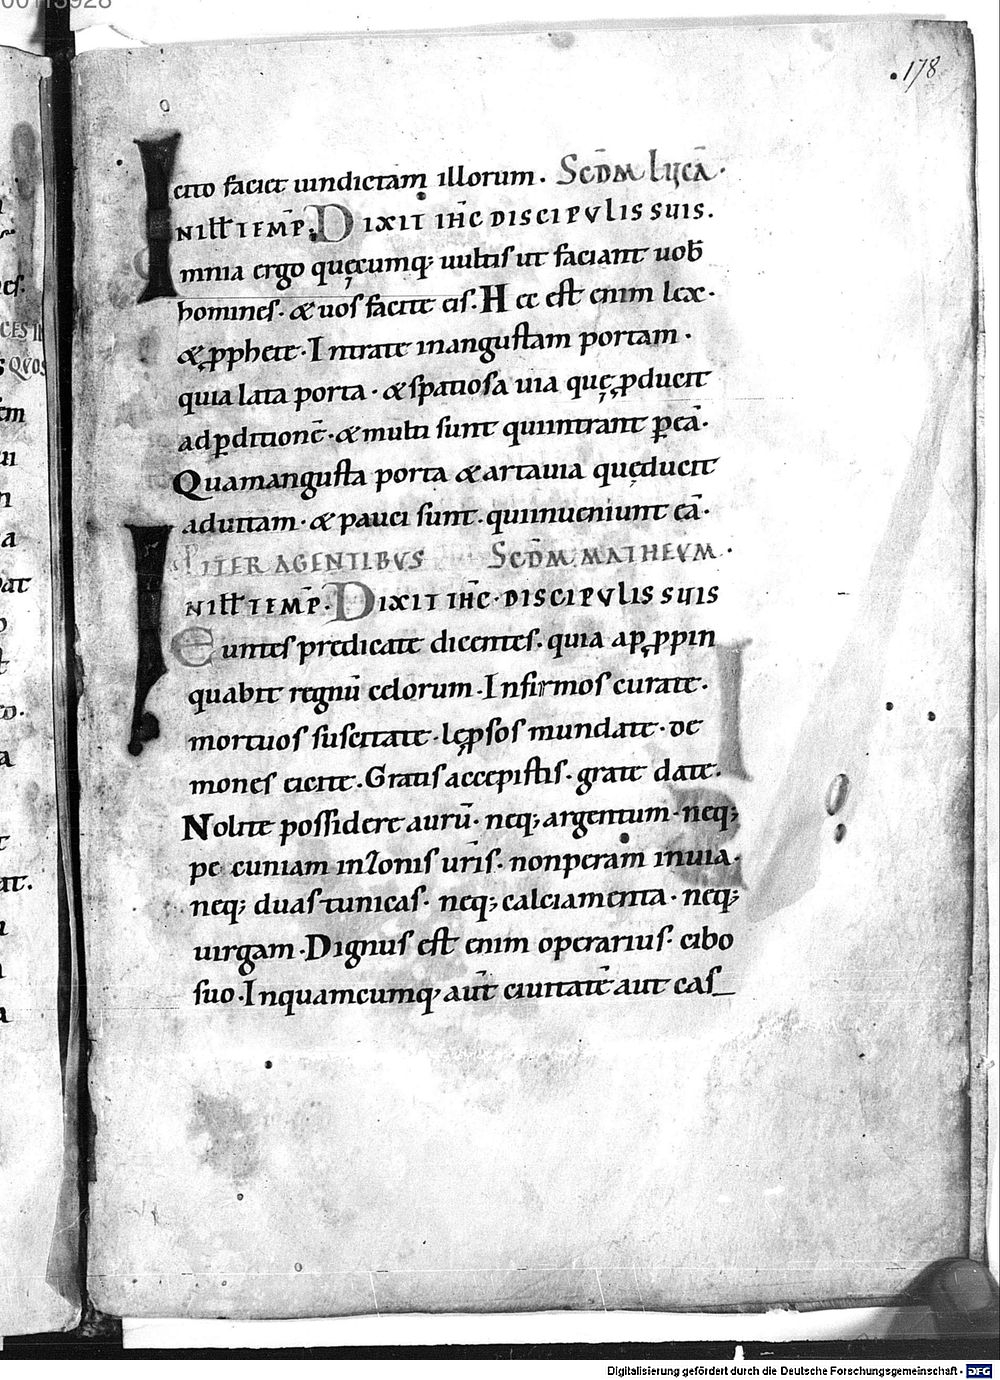 178
cito faciet uindictam illorum. Scdm Lucā.
In illt temp. Dixit ihc discipulis suis.
Omnia ergo quęcumq; uultis ut faciant uob
homines. & uos facite eis. Hec est enim lex.
& pphete. Intrate in angustam portam.
quia lata porta. & spatiosa uia quę pducit
ad pditionē. & multi sunt qui intrant p eā.
Quam angusta porta & arta uia quę ducit
ad uitam. & pauci sunt. qui inueniunt eā.
ITER AGENTIBUS Scdm Matheum.
In illt temp. Dixit ihc discipulis suis
Euntes predicate dicentes. quia appropin
quabit regnū celorum. Infirmos curate.
mortuos suscitate. lęprosos mundate. de
mones eicite. Gratis accepistis. gratis date.
Nolite possidere aurū. neq; argentum. neq;
pecuniam in zonis uris. non peram in uia.
neq; duas tunicas. neq; calciamenta. neq;
uirgam. Dignus est enim operarius. cibo
suo. In quamcumq; aūt ciuitatē aut cas_
Digitalisierung gefördert durch die Deutsche Forschungsgemeinschaft - DFG